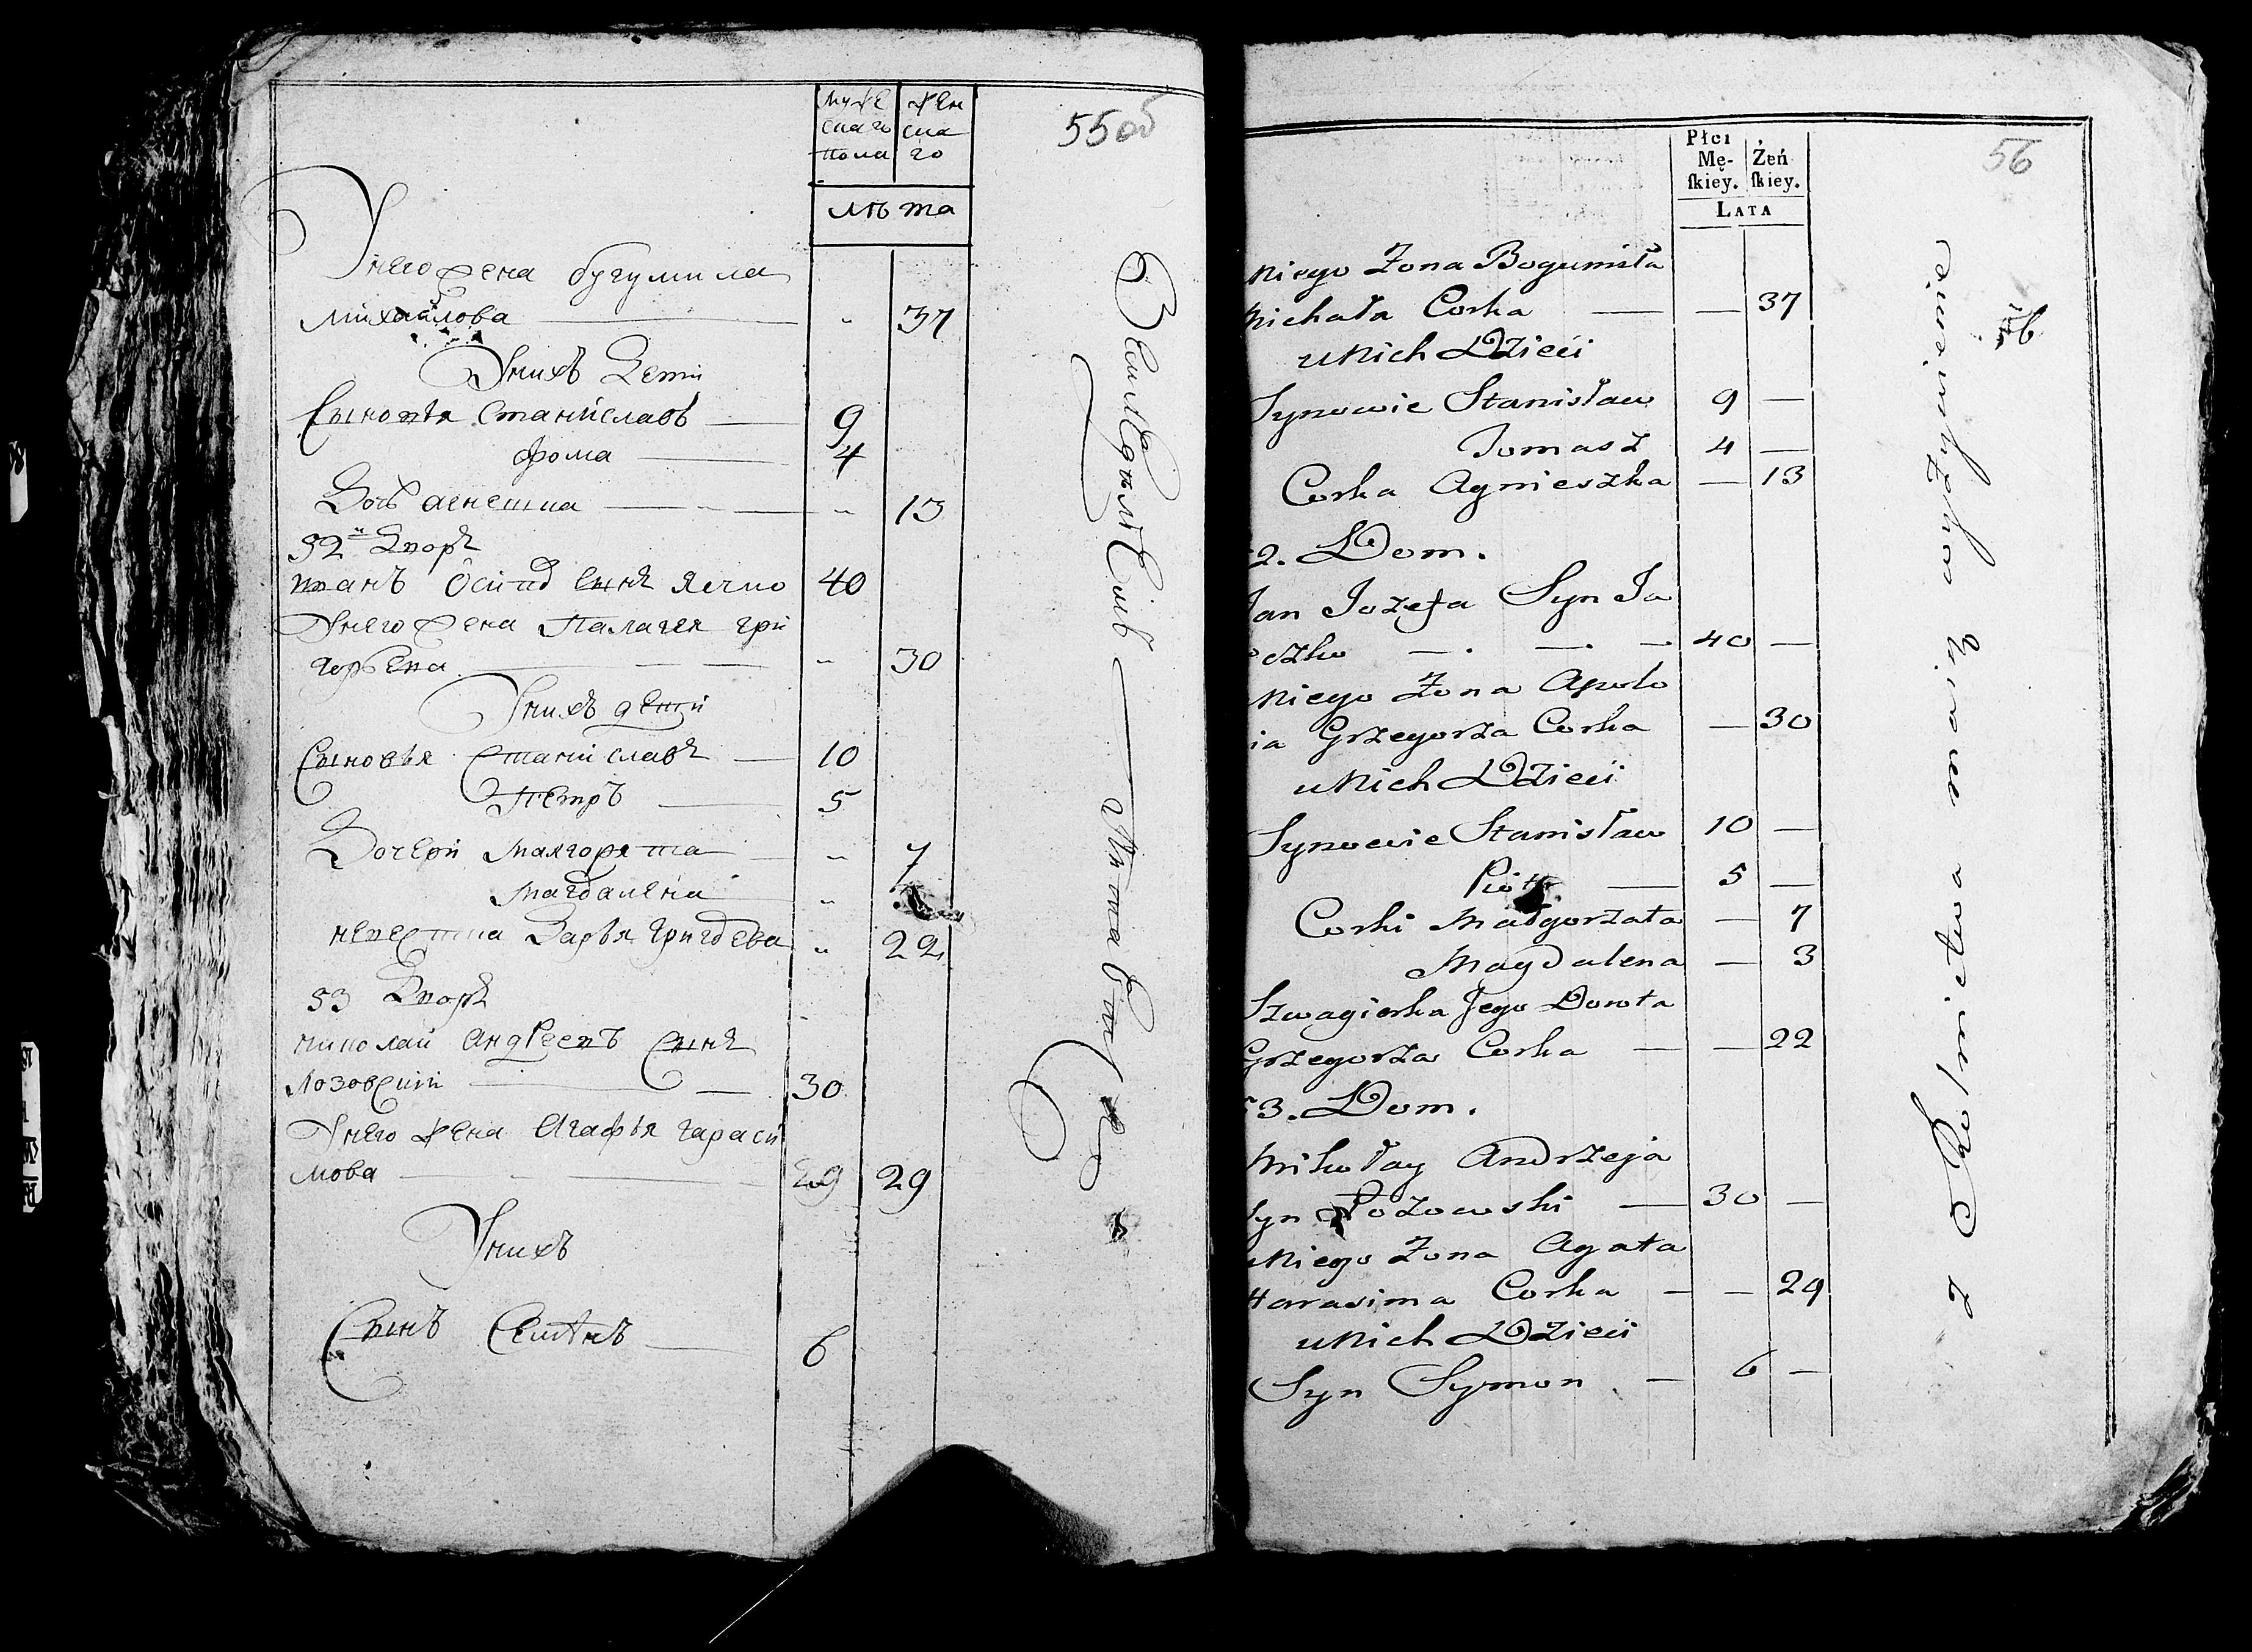 55об
муже
скаго
пола
жен
ска
го
лѣта
Унего жена бугумила
михайлова 37
Унихъ Дети
Сыновья Станиславъ 9
фома 4
Дочь агнешка 13
52й Дворъ
иванъ Осипо сынъ ячко 40
Унего жена Палагея гри
горьева 30
Унихъ дети
Сыновья Станиславъ 10
Петръ 5
Дочери Малгорята 7
Магдалена
невестка Дарья григорева 22
53 Дворъ
николай андреевъ сынъ
лозовский 30
Унего жена Агафья гараси
мова 29 29
Унихъ
Сынъ Семѣнъ 6
56
Płci
Mę-
ſkiey.
Żeń
ſkiey.
LATA
niego Zona Bogumiła
Michała Corka — — 37
uNich Dzieci
Synowie Stanisław 9 —
Tomasz 4 —
Corka Agnieszka — 13
2. Dom.
Jan Jozefa Syn Ja
czko — . — . — 40 —
Niego Zona Apolo
ia Grzegorza Corka — 30
uNich Dzieci
Synowie Stanisław 10 —
Piotr — 5 —
Corki Małgorzata — 7
Magdalena — 3
Szwagierka Jego Dorota
Grzegorza Corka — — 22
53. Dom.
Mikołay Andrzeja
Syn Łozowski — 30 —
uNiego Zona Agata
Harasima Corka — — 29
uNich Dzieci
Syn Symon — 6 —
z Rolnictwa maią wyżywienie